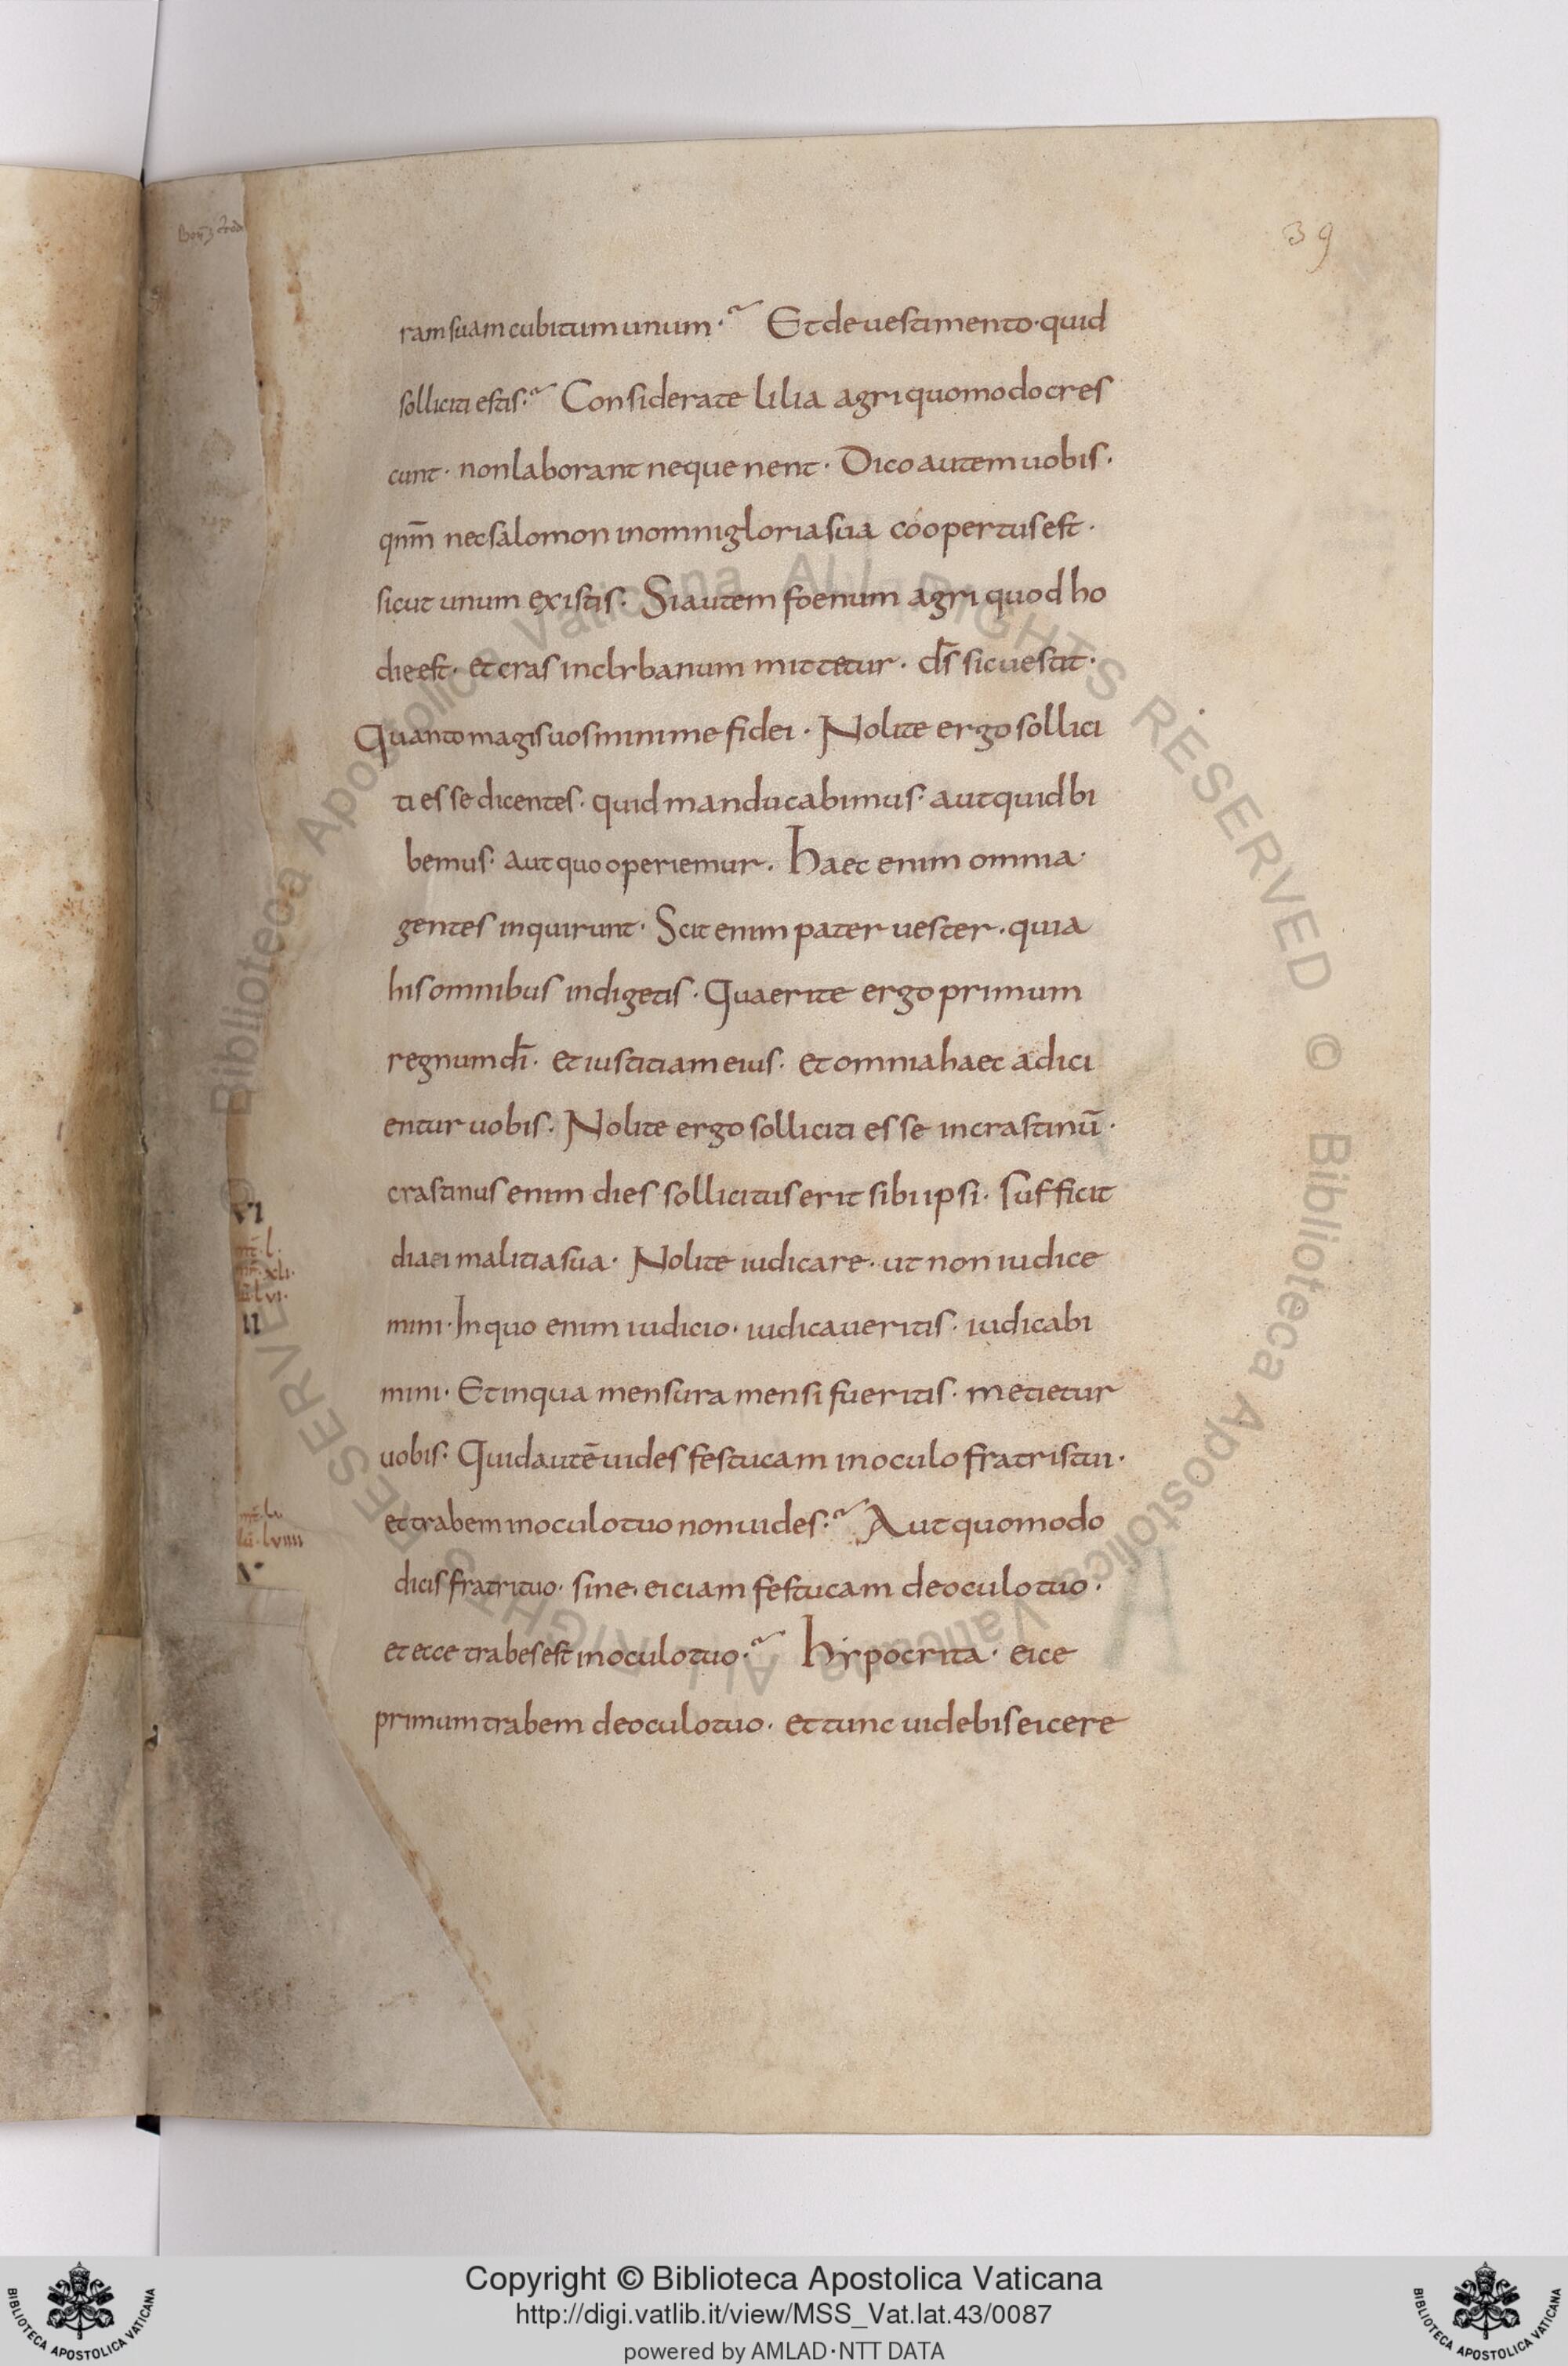 39
ram suam cubitum unum· Et de uestimento· quid
solliciti estis· Considerate lilia agri quomodo cres
cunt· non laborant neque nent· Dico autem uobis·
qnm̄ nec salomon in omni gloria sua coopertus est·
sicut unum ex istis· Si autem foenum agri quod ho
die est· et cras in clibanum mittetur· d̄s sic uestit·
Quanto magis uos minime fidei· Nolite ergo sollici
ti esse dicentes· quid manducabimus· aut quid bi
bemus· aut quo operiemur· haec enim omnia·
gentes inquirunt· Scit enim pater uester· quia
his omnibus indigetis· Quaerite ergo primum
regnum dī· et iustitiam eius· et omnia haec adici
entur uobis· Nolite ergo solliciti esse in crastinū·
crastinus enim dies sollicitus erit sibi ipsi· Sufficit
diaei malitia sua· Nolite iudicare· ut non iudice
mini· In quo enim iudicio· iudicaueritis· iudicabi
mini· Et in qua mensura mensi fueritis· metietur
uobis· Quid autē uides festucam in oculo fratris tui·
et trabem in oculo tuo non uides· Aut quomodo
dicis fratri tuo· sine· eiciam festucam de oculo tuo·
et ecce trabes est in oculo tuo· hẏpocrita· eice
primum trabem de oculo tuo· et tunc uidebis eicere
Copyright © Biblioteca Apostolica Vaticana
http://digi.vatlib.it/view/MSS_Vat.lat.43/0087
powered by AMLAD·NTT DATA
BIBLIOTECA APOSTOLICA VATICANA
BIBLIOTECA APOSTOLICA VATICANA
© Biblioteca Apostolica Vaticana ALL RIGHTS RESERVED © Biblioteca Apostolica Vaticana ALL RIGHTS RESERVED